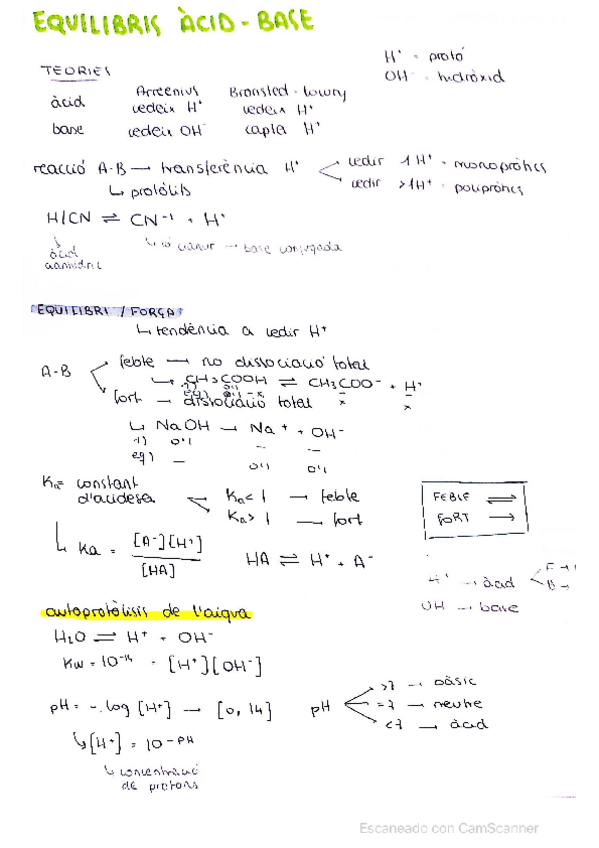 EQUILIBRIS ÀCID - BASE
H⁺ = protó
OH⁻ = hidròxid
TEORIES
Arrenius Bronsted - lowry
àcid cedeix H⁺ cedeix H⁺
base cedeix OH⁻ capta H⁺
reacció A-B → transferència H⁺
cedir 1 H⁺ → monopròtics
cedir >1H⁺ → polipròtics
↳ protòlits
H/CN ⇌ CN⁻¹ + H⁺
àcid
cianhídric
↳ ió cianur → base conjugada
EQUILIBRI / FORÇA
↳ tendència a cedir H⁺
A-B
feble → no dissociació total
↳ CH₃COOH ⇌ CH₃COO⁻ + H⁺
x x
fort → dissociació total
↳ NaOH → Na⁺ + OH⁻
i) 0'1 – –
eq) – 0'1 0'1
Ka = constant
d'acidesa
Ka < 1 → feble
Ka > 1 → fort
FEBLE ⇌
FORT →
↳ Ka = [A⁻][H⁺] / [HA]
HA ⇌ H⁺ + A⁻
H⁺ → àcid
OH → base
autoprotòlisis de l'aigua
H₂O ⇌ H⁺ + OH⁻
Kw = 10⁻¹⁴ = [H⁺][OH⁻]
pH = -log [H⁺] → [0, 14]
pH
>7 → bàsic
=7 → neutre
<7 → àcid
↳ [H⁺] = 10⁻ᵖᴴ
↳ concentració
de protons
Escaneado con CamScanner